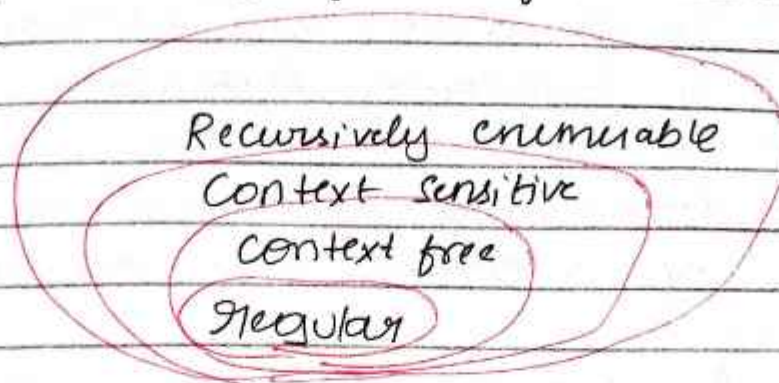 Recursively enumerable
Context sensitive
Context free
Regular